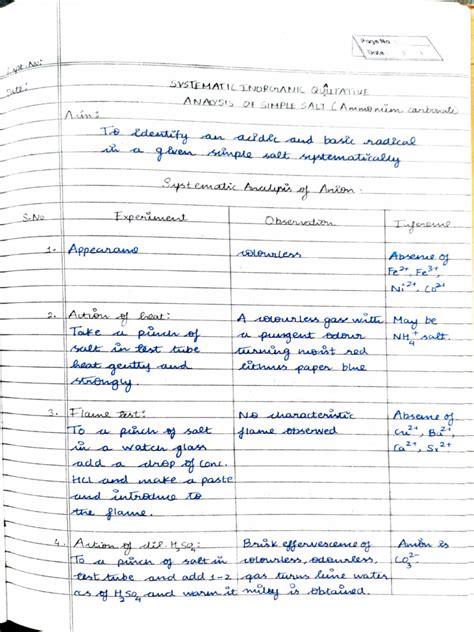 Page No.
Date
Expt. No:
Date:
SYSTEMATIC INORGANIC QUALITATIVE
ANALYSIS OF SIMPLE SALT (Ammonium carbonate
Aim:
To identify an acidic and basic radical
in a given simple salt systematically
Systematic Analysis of Anion.
S.No Experiment Observation Inference
1. Appearance colourless Absence of
Fe²⁺, Fe³⁺,
Ni²⁺, Co²⁺
2. Action of heat: A colourless gas with May be
Take a pinch of a pungent odour NH₄⁺ salt.
salt in test tube turning moist red
heat gently and litmus paper blue
strongly.
3. Flame test: No characteristic Absence of
To a pinch of salt flame observed Cu²⁺, Ba²⁺,
in a watch glass Ca²⁺, Sr²⁺
add a drop of conc.
HCl and make a paste
and introduce to
the flame.
4. Action of dil. H₂SO₄: Brisk effervescence of Anion is
To a pinch of salt in colourless, odourless, CO₃²⁻
test tube and add 1-2 gas turns lime water
cs of H₂SO₄ and warm it milky is obtained.